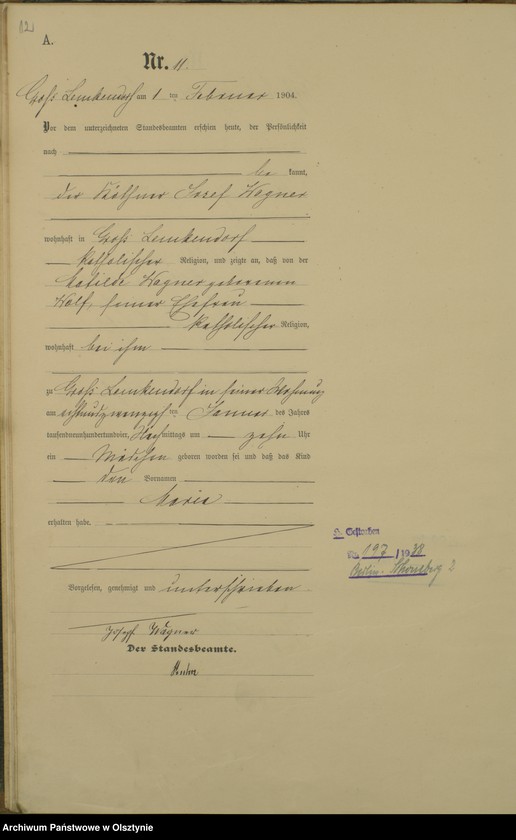 12
A.
Nr. 11.
Groß Lemkendorf am 1 ten Februar 1904.
Vor dem unterzeichneten Standesbeamten erschien heute, der Persönlichkeit
nach
be kannt,
der Käthner Josef Wagner
wohnhaft in Groß Lemkendorf
katholischer Religion, und zeigte an, daß von der
Matilde Wagner geborenen
Wolf, seiner Ehefrau
katholischer Religion,
wohnhaft bei ihm
zu Groß Lemkendorf in seiner Wohnung
am achtundzwanzigsten Januar des Jahrs
tausendneunhundertundvier, Nachmittags um zehn Uhr
ein Mädchen geboren worden sei und daß das Kind
den Vornamen
Maria
erhalten habe.
Gestorben
No 197/1938
Berlin-Schöneberg 2
Vorgelesen, genehmigt und unterschrieben
Josef Wagner
Der Standesbeamte.
Archiwum Państwowe w Olsztynie